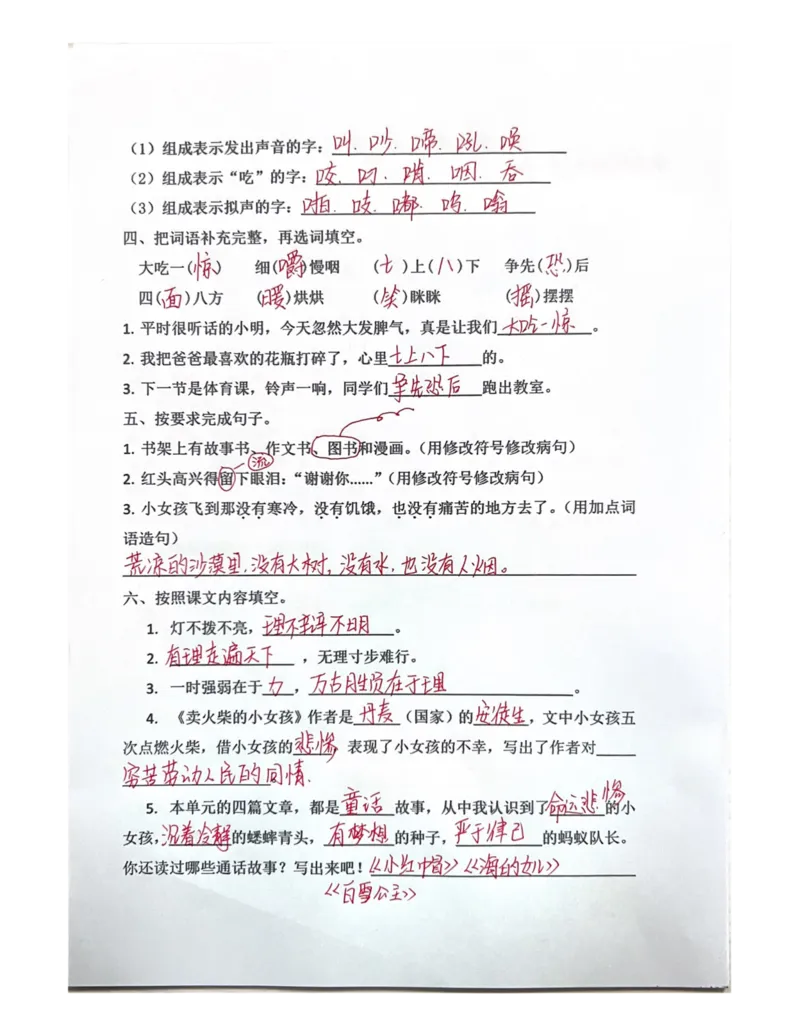 (1)组成表示发出声音的字:叫.吵.啼.吼.唤
(2)组成表示“吃”的字:咬.叼.啃.咽.吞
(3)组成表示拟声的字:啪.吱.嘟.呜.嗡
四、把词语补充完整,再选词填空。
大吃一(惊) 细(嚼)慢咽 (七)上(八)下 争先(恐)后
四(面)八方 (暖)烘烘 (笑)眯眯 (摇)摆摆
1. 平时很听话的小明,今天忽然大发脾气,真是让我们大吃一惊。
2. 我把爸爸最喜欢的花瓶打碎了,心里七上八下的。
3. 下一节是体育课,铃声一响,同学们争先恐后跑出教室。
五、按要求完成句子。
1. 书架上有故事书、作文书、图书和漫画。(用修改符号修改病句)
流
2. 红头高兴得留下眼泪:“谢谢你……”(用修改符号修改病句)
3. 小女孩飞到那没有寒冷,没有饥饿,也没有痛苦的地方去了。(用加点词
语造句)
荒凉的沙漠里,没有大树,没有水,也没有人烟。
六、按照课文内容填空。
1. 灯不拨不亮,理不辩不明。
2. 有理走遍天下,无理寸步难行。
3. 一时强弱在于力,万古胜负在于理。
4. 《卖火柴的小女孩》作者是丹麦(国家)的安徒生,文中小女孩五
次点燃火柴,借小女孩的悲惨,表现了小女孩的不幸,写出了作者对
穷苦劳动人民的同情.
5. 本单元的四篇文章,都是童话故事,从中我认识到了命运悲惨的小
女孩,沉着冷静的蟋蟀青头,有梦想的种子,严于律己的蚂蚁队长。
你还读过哪些通话故事?写出来吧!《小红帽》《海的女儿》
《白雪公主》